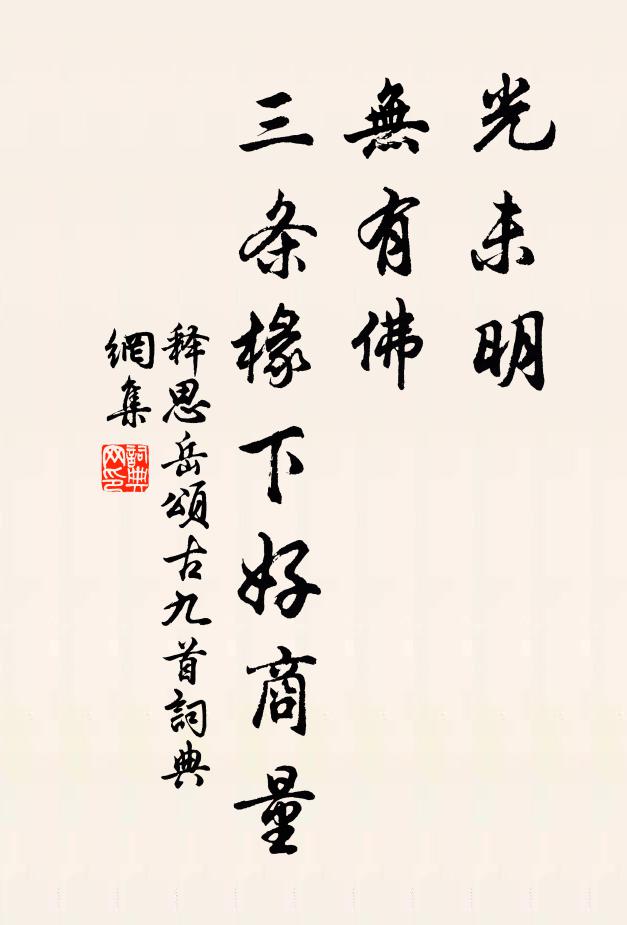 光未明
無有佛
三条椽下好商量
释思岳頌古九首詞典
網集
詞典
网印